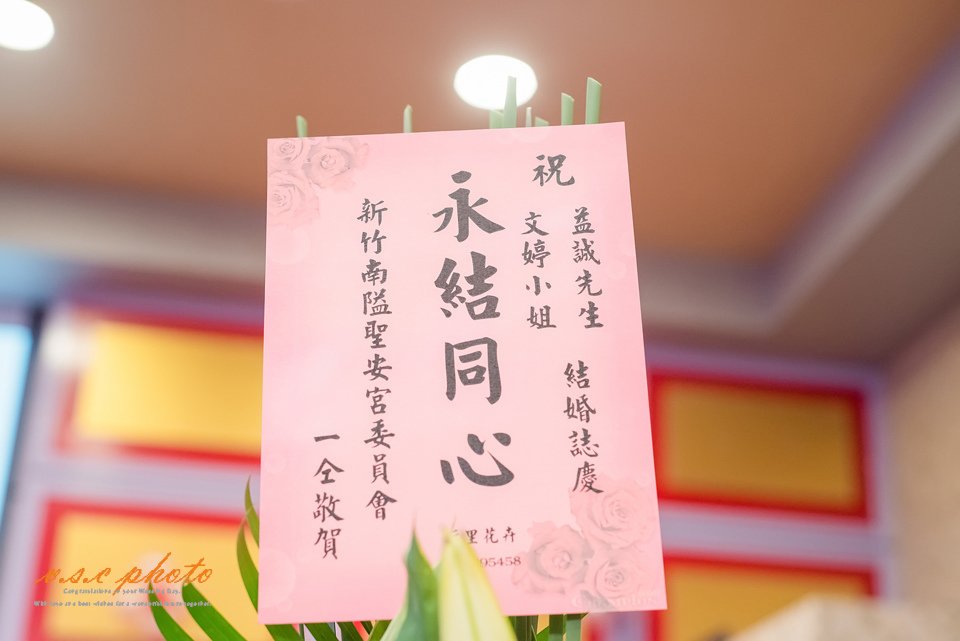 祝
益誠先生 結婚誌慶
文婷小姐
永結同心
新竹南隘聖安宮委員會
一仝敬賀
里花卉
95458
v.s.c photo